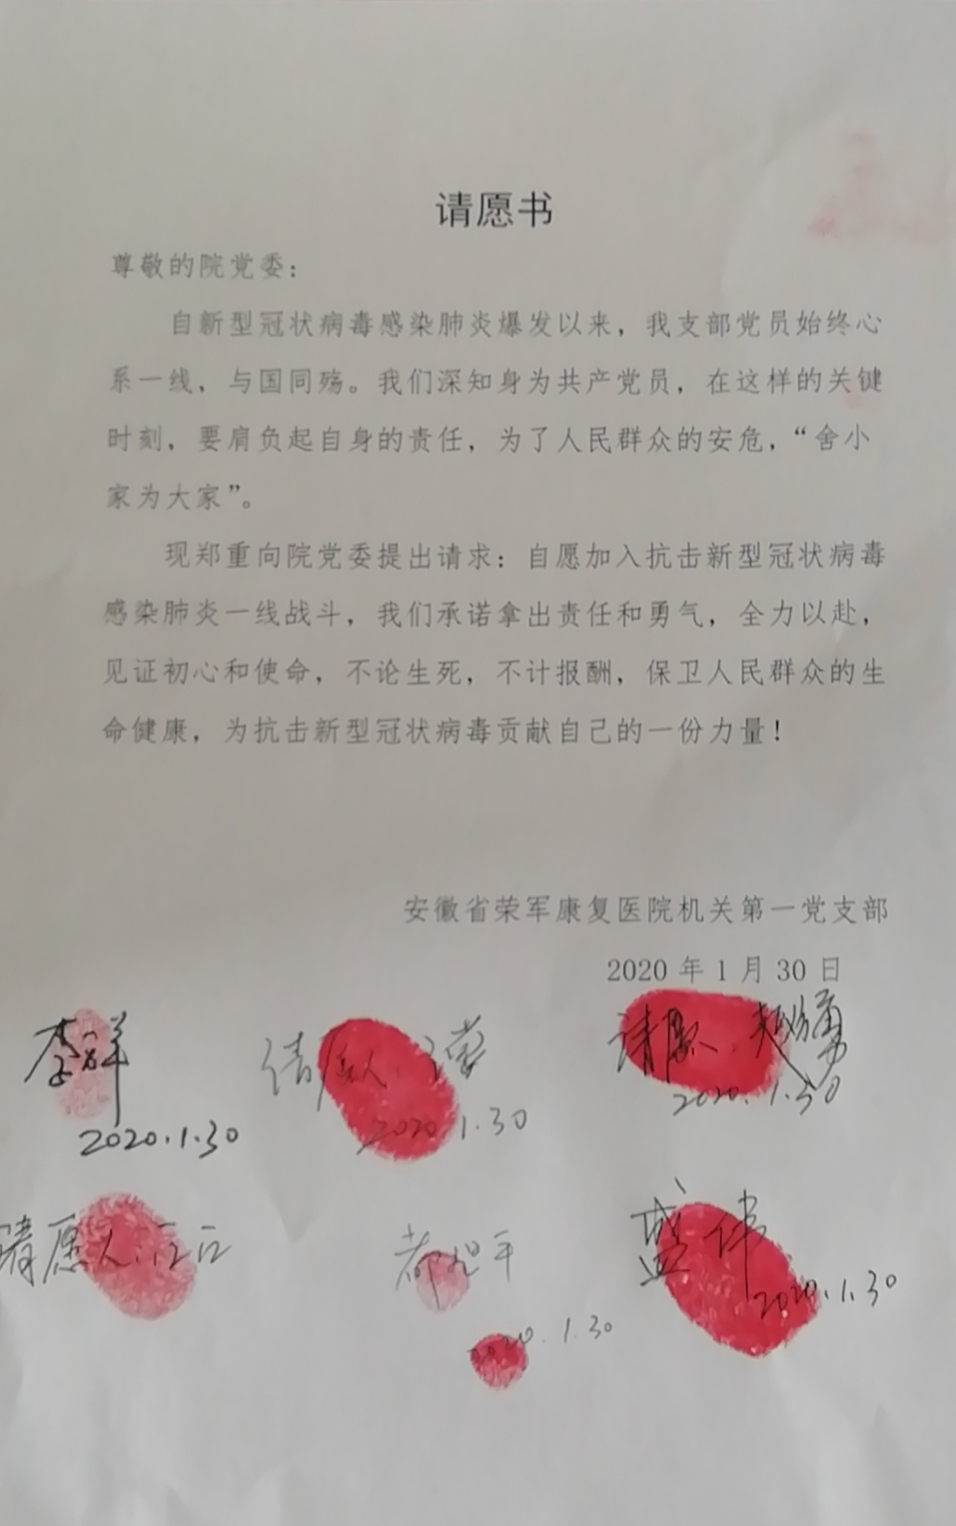 请愿书
尊敬的院党委：
自新型冠状病毒感染肺炎爆发以来，我支部党员始终心
系一线，与国同殇。我们深知身为共产党员，在这样的关键
时刻，要肩负起自身的责任，为了人民群众的安危，“舍小
家为大家”。
现郑重向院党委提出请求：自愿加入抗击新型冠状病毒
感染肺炎一线战斗，我们承诺拿出责任和勇气，全力以赴，
见证初心和使命，不论生死，不计报酬，保卫人民群众的生
命健康，为抗击新型冠状病毒贡献自己的一份力量！
安徽省荣军康复医院机关第一党支部
2020 年 1 月 30 日
李祥
2020.1.30
请愿人：
2020.1.30
请愿人：
2020.1.30
请愿人：
盛伟
2020.1.30
2020.1.30